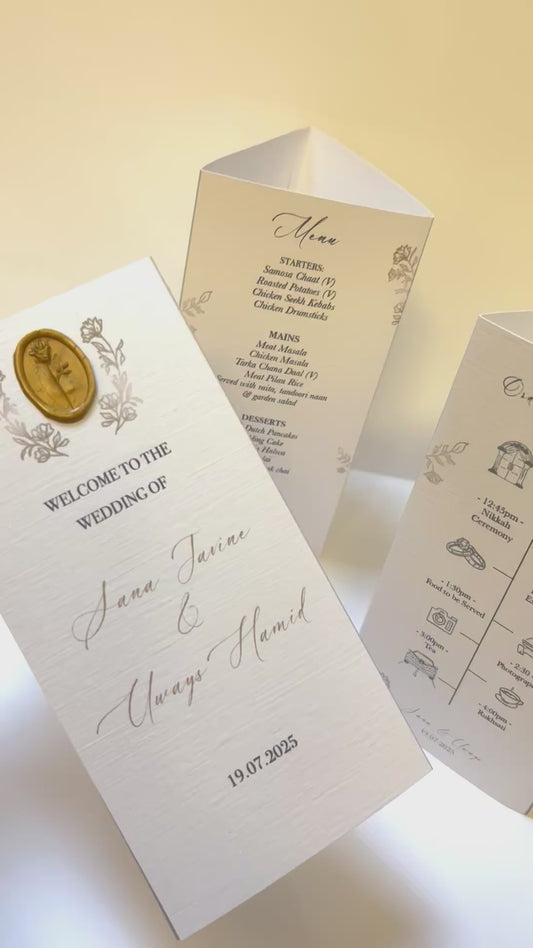 WELCOME TO THE
WEDDING OF
Sana Tavine
&
Uways Hamid
19.07.2025
Menu
STARTERS:
Samosa Chaat (V)
Roasted Potatoes (V)
Chicken Seekh Kebabs
Chicken Drumsticks
MAINS
Meat Masala
Chicken Masala
Tarka Chana Daal (V)
Meat Pilau Rice
Served with raita, tandoori naan
& garden salad
DESSERTS
Dutch Pancakes
Cake
Halwa
chai
- 12:45pm -
Nikkah
Ceremony
- 1:30pm -
Food to be Served
- 2:30
- 3:00pm -
Tea
- 4:00pm -
Rukhsati
Sana & Uways
19.07.2025